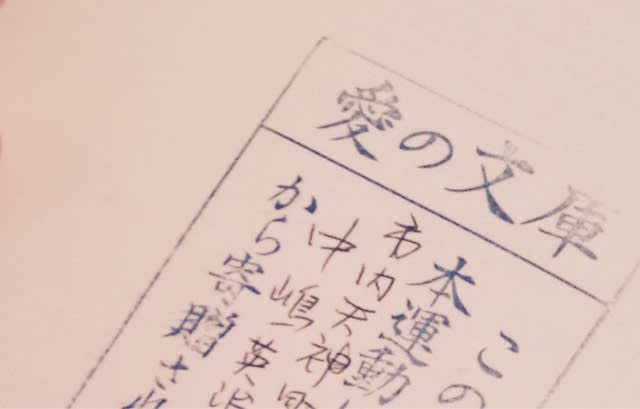 愛の文庫
この
本運動
市内天神町
中嶋英
から寄贈され